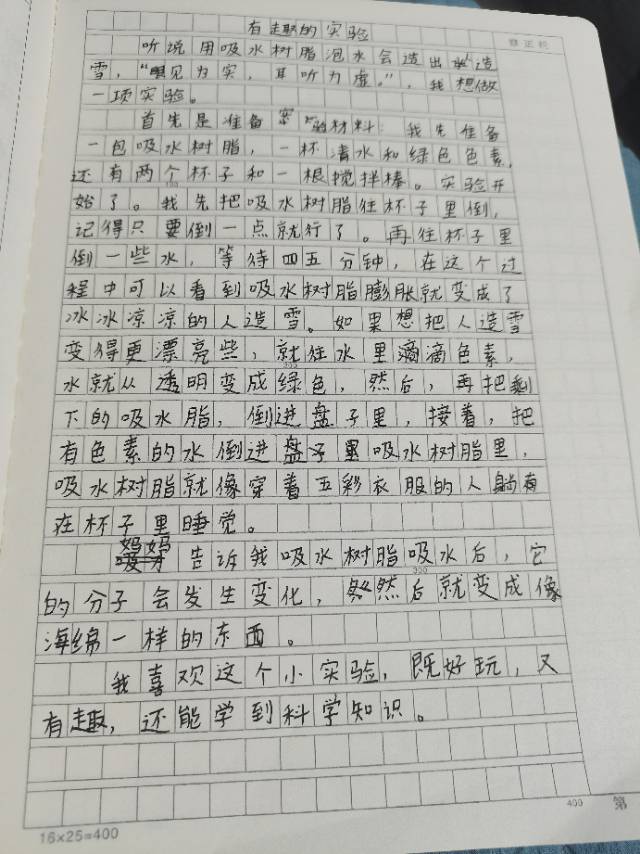 有趣的实验
听说用吸水树脂泡水会造出人造
雪，“眼见为实，耳听为虚。”，我想做
一项实验。
首先是准备实验材料：我先准备
一包吸水树脂，一杯清水和绿色色素，
还有两个杯子和一根搅拌棒。实验开
始了。我先把吸水树脂往杯子里倒，
记得只要倒一点就行了。再往杯子里
倒一些水，等待四五分钟，在这个过
程中可以看到吸水树脂膨胀就变成了
冰冰凉凉的人造雪。如果想把人造雪
变得更漂亮些，就往水里滴滴色素，
水就从透明变成绿色，然后，再把剩
下的吸水脂，倒进盘子里，接着，把
有色素的水倒进盘子里吸水树脂里，
吸水树脂就像穿着五彩衣服的人躺
在杯子里睡觉。
妈妈告诉我吸水树脂吸水后，它
的分子会发生变化，然后就变成像
海绵一样的东西。
我喜欢这个小实验，既好玩，又
有趣，还能学到科学知识。
100
200
300
400
第
16×25=400